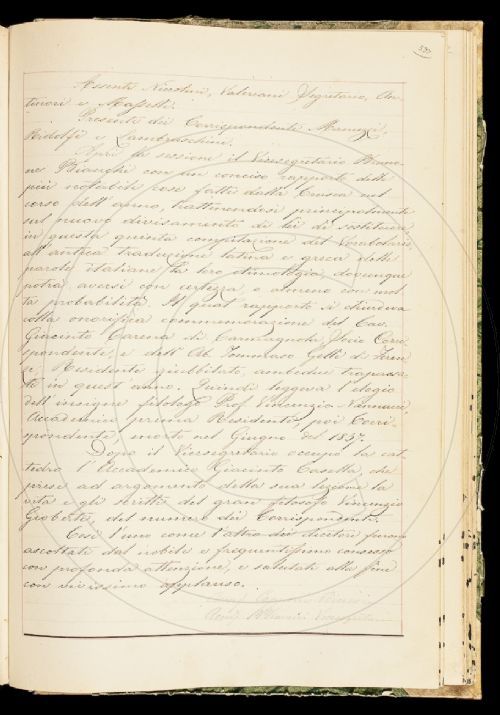 Assenti Niccolini, Valeriani Segretario, An-
tinori e Mosotti.
Presenti dei Corrispondenti Manuzzi,
Ridolfi e Lambruschini.
Aprì la sessione il Vicesegretario Brunone
ne Bianchi con un conciso rapporto delle
più notabili cose fatte dalla Crusca nel
corso dell'anno, trattenendosi principalmente
sul nuovo divisamento di lei di sostituire
in questa quinta compilazione del Vocabolario,
all'antica traduzione latina e greca delle
parole italiane la loro etimologia, dovunque
potrà aversi con certezza, o almeno con mol-
ta probabilità. Il qual rapporto si chiudeva
colla onorifica commemorazione del Cav.
Giacinto Carena di Carmagnola, Socio Corri-
spondente, e dell'Ab. Tommaso Gelli di Firen-
ze, Residente giubbilato, ambedue trapassa-
ti in quest'anno. Quindi leggeva l'elogio
dell'insigne filologo Prof. Vincenzio Nannucci,
Accademico prima Residente, poi Corri-
spondente, morto nel Giugno del 1857.
Dopo il Vicesegretario occupò la cat-
tedra l'Accademico Giacinto Casella, che
prese ad argomento della sua lezione la
vita e gli scritti del gran filosofo Vincenzio
Gioberti, del numero dei Corrispondenti.
Così l'uno come l'altro dei dicitori furono
ascoltati dal nobile e frequentissimo consesso
con profonda attenzione, e salutati alla fine
con vivissimo applauso.